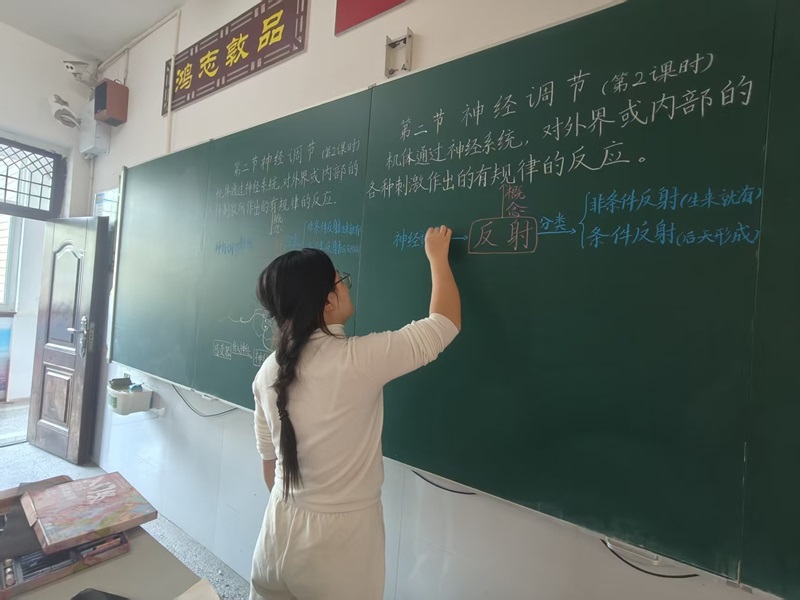 鸿志敦品
第二节 神经调节(第2课时)
机体通过神经系统,对外界或内部的
各种刺激作出的有规律的反应。
概念
神经
反射
分类
非条件反射(生来就有)
条件反射(后天形成)
第二节 神经调节(第2课时)
机体通过神经系统,对外界或内部的
种刺激作出的有规律的反应.
概念
非条件反射(生来就有)
感受器